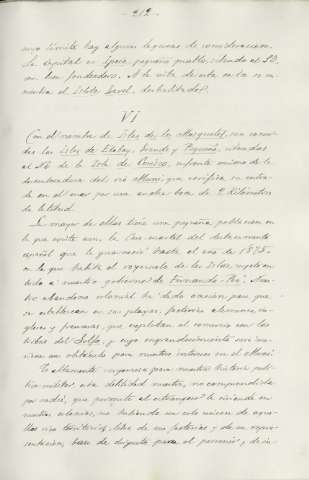 - 212 -
cuyo límite hay algunas lagunas de consideracion.
La capital es Epoco, pequeño pueblo, situado al SO.
con buen fondeadero. A la vista de esta costa se en-
cuentra el Islote Laval, deshabitado.
VI
Con el nombre de Islas de los Mosquitos, son conoci-
das las Islas de Elobey, Grande y Pequeña, situadas
al NE de la Isla de Corisco, enfrente mismo de la
desembocadura del rio Muni, que verifica su entra-
da en el mar por una ancha boca de 2 Kilómetros
de latitud.
La mayor de ellas tiene una pequeña poblacion en
la que existe aun la Casa-cuartel del destacamento
español que la guarneció hasta el año de 1875,
en la que habita el reyezuelo de las Islas, sujeto en
todo a nuestro gobierno de Fernando-Póo. Nues-
tro abandono colonial ha dado ocasion para que
se establezcan en sus playas, factorias alemanas, in-
glesas y francesas, que explotan el comercio con las
tribus del Golfo, y cuyo engrandecimiento cons-
tituye un obstáculo para nuestros intereses en el Muni.
Es altamente vergonzosa para nuestra historia polí-
tico militar esta debilidad nuestra, no comprendida
por nadie, que permite al extrangero la vivienda en
nuestras colonias, no habiendo un solo rincon de aque-
llos ricos territorios, libre de sus factorias y de su repre-
sentacion, base de disgusto para el porvenir, y de in-